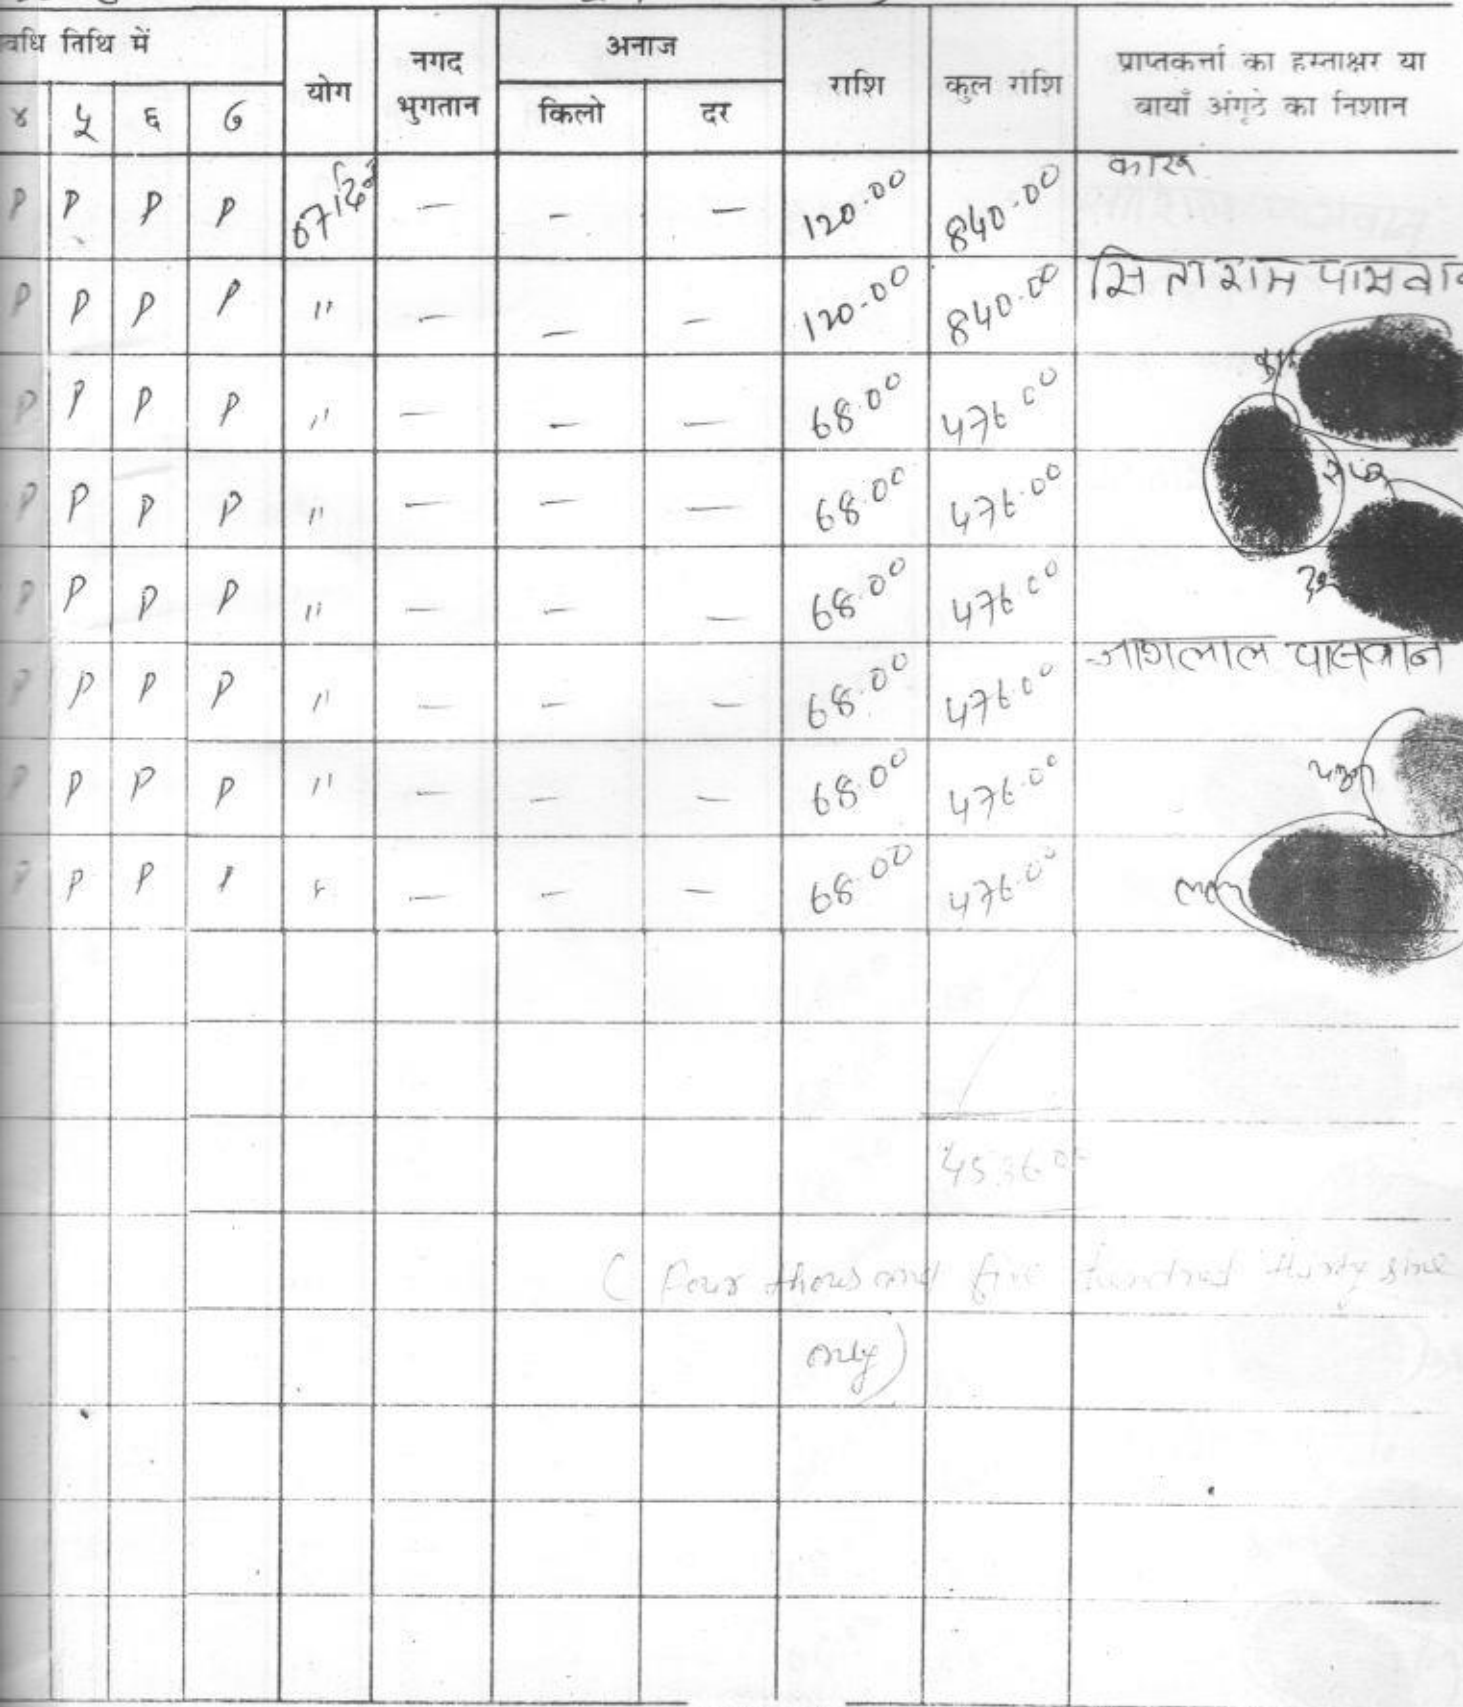 वधि तिथि में योग नगद भुगतान अनाज राशि कुल राशि प्राप्तकर्त्ता का हस्ताक्षर या बायाँ अंगूठे का निशान
४ ५ ६ ७ किलो दर
P P P P 07 दिन — — — 120.00 840.00 कारू
P P P P " — — — 120.00 840.00 सिताराम पासवान
P P P P " — — — 68.00 476.00
P P P P " — — — 68.00 476.00
P P P P " — — — 68.00 476.00
P P P P " — — — 68.00 476.00 जागलाल पासवान
P P P P " — — — 68.00 476.00
P P P P " — — — 68.00 476.00
4536.00
( Four thousand five hundred thirty six
only)